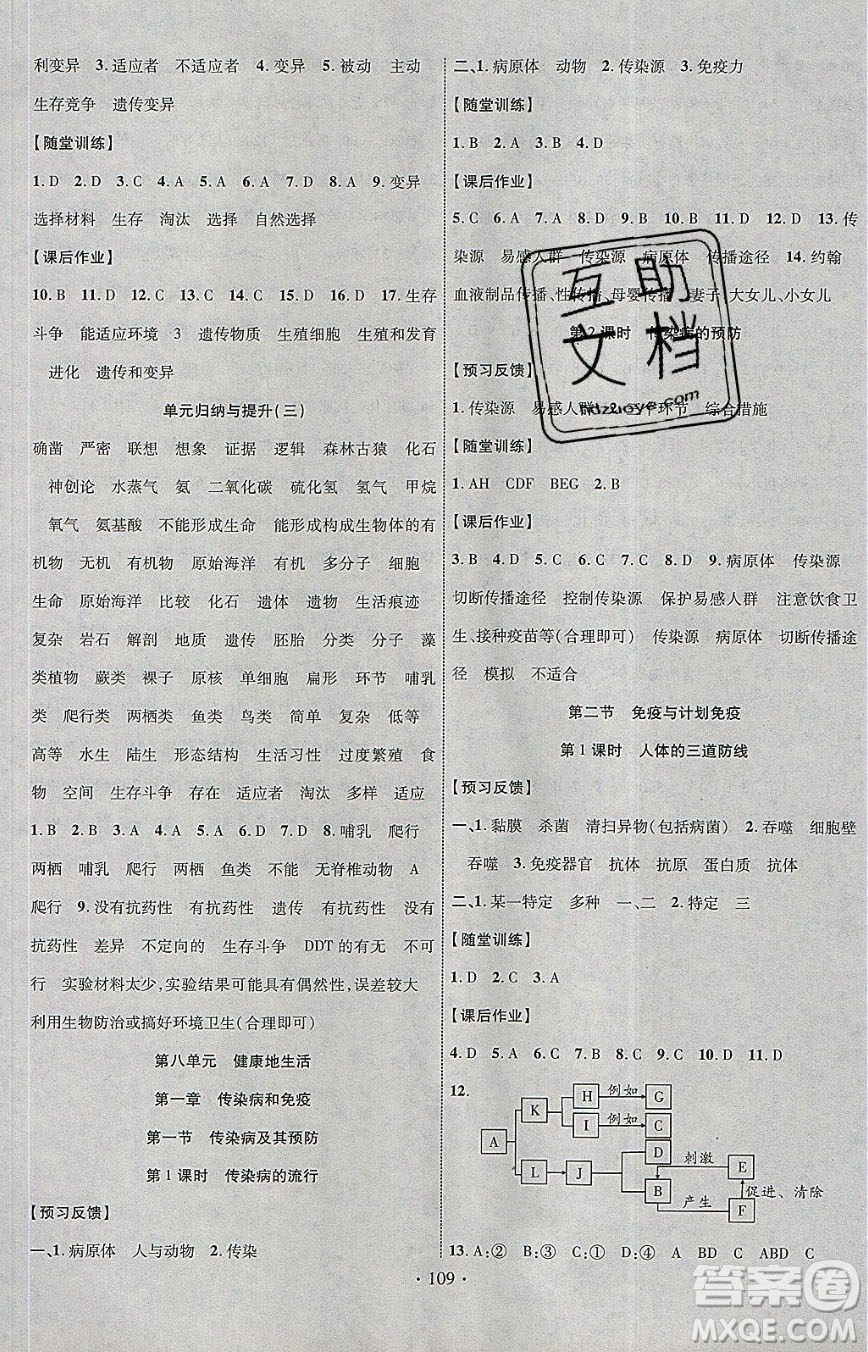 利变异 3.适应者 不适应者 4.变异 5.被动 主动
生存竞争 遗传变异
【随堂训练】
1.D 2.D 3.C 4.A 5.A 6.A 7.D 8.A 9.变异
选择材料 生存 淘汰 选择 自然选择
【课后作业】
10.B 11.D 12.D 13.D 14.C 15.A 16.A 17.生存
斗争 能适应环境 3 遗传物质 生殖细胞 生殖和发育
进化 遗传和变异
单元归纳与提升(三)
确凿 严密 联想 想象 证据 逻辑 森林古猿 化石
神创论 水蒸气 氨 二氧化碳 硫化氢 氢气 甲烷
氧气 氨基酸 不能形成生命 能形成构成生物体的有
机物 无机 有机物 原始海洋 有机 多分子 细胞
生命 原始海洋 比较 化石 遗体 遗物 生活痕迹
复杂 岩石 解剖 地质 遗传 胚胎 分类 分子 藻
类植物 蕨类 裸子 单细胞 扁形 环节 哺乳
类 爬行类 两栖类 鱼类 鸟类 简单 复杂 低等
高等 水生 陆生 形态结构 生活习性 过度繁殖 食
物 空间 生存斗争 存在 适应者 淘汰 多样 适应
1.B 2.A 3.D 4.A 5.B 6.C 7.D 8.哺乳 爬行
两栖 哺乳 爬行 两栖 鱼类 不能 无脊椎动物 A
爬行 9.没有抗药性 有抗药性 遗传 有抗药性 没有
抗药性 差异 不定向的 生存斗争 DDT的有无 不可
行 实验材料太少,实验结果可能具有偶然性,误差较大
利用生物防治或搞好环境卫生(合理即可)
第八单元 健康地生活
第一章 传染病和免疫
第一节 传染病及其预防
第1课时 传染病的流行
【预习反馈】
一、1.病原体 人与动物 2.传染
二、1.病原体 动物 2.传染源 3.免疫力
【随堂训练】
1.B 2.A 3.B 4.D
【课后作业】
5.C 6.C 7.A 8.D 9.B 10.B 11.D 12.D 13.传
染源 易感人群 传染源 病原体 传播途径 14.约翰
血液制品传播、性传播、母婴传播 妻子、大女儿、小女儿
第2课时 传染病的预防
【预习反馈】
1.传染源 易感人群 环节 综合措施
【随堂训练】
1.AH CDF BEG 2.B
【课后作业】
3.B 4.D 5.C 6.C 7.D 8.D 9.病原体 传染源
切断传播途径 控制传染源 保护易感人群 注意饮食卫
生、接种疫苗等(合理即可) 传染源 病原体 切断传播途
径 模拟 不适合
第二节 免疫与计划免疫
第1课时 人体的三道防线
【预习反馈】
一、1.黏膜 杀菌 清扫异物(包括病菌) 2.吞噬 细胞壁
吞噬 3.免疫器官 抗体 抗原 蛋白质 抗体
二、1.某一特定 多种 一、二 2.特定 三
【随堂训练】
1.D 2.C 3.A
【课后作业】
4.D 5.A 6.B 7.C 8.A 9.C 10.D 11.D
12.
A K H 例如 G
I 例如 C
L J D 刺激 E
B 产生 F 促进、清除
13.A:② B:③ C:① D:④ A ABD C ABD C
· 109 ·
互助文档
hdzuoye.com
答案圈
MXQE.COM